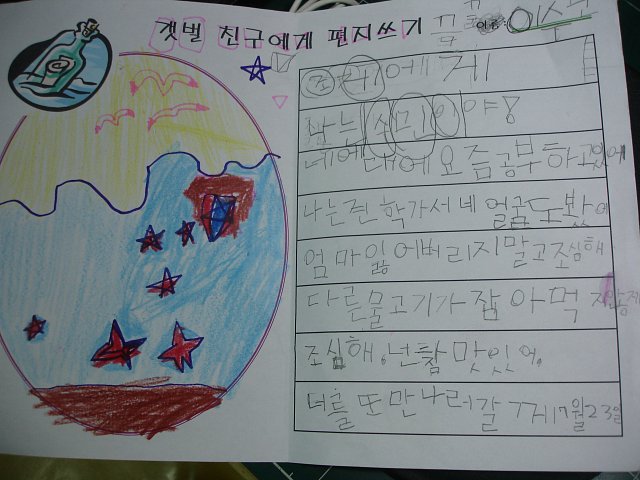 갯벌 친구에게 편지쓰기
이름:
에게
나는 야
네에 대에 요즘 공부하고있어
나는 진학가서 네 얼굴도 봤어
엄마 잃어버리지말고 조심해
다른물고기가 잡아먹
조심해, 넌 참 맛있어.
너를 또 만나러 갈게 7월23일